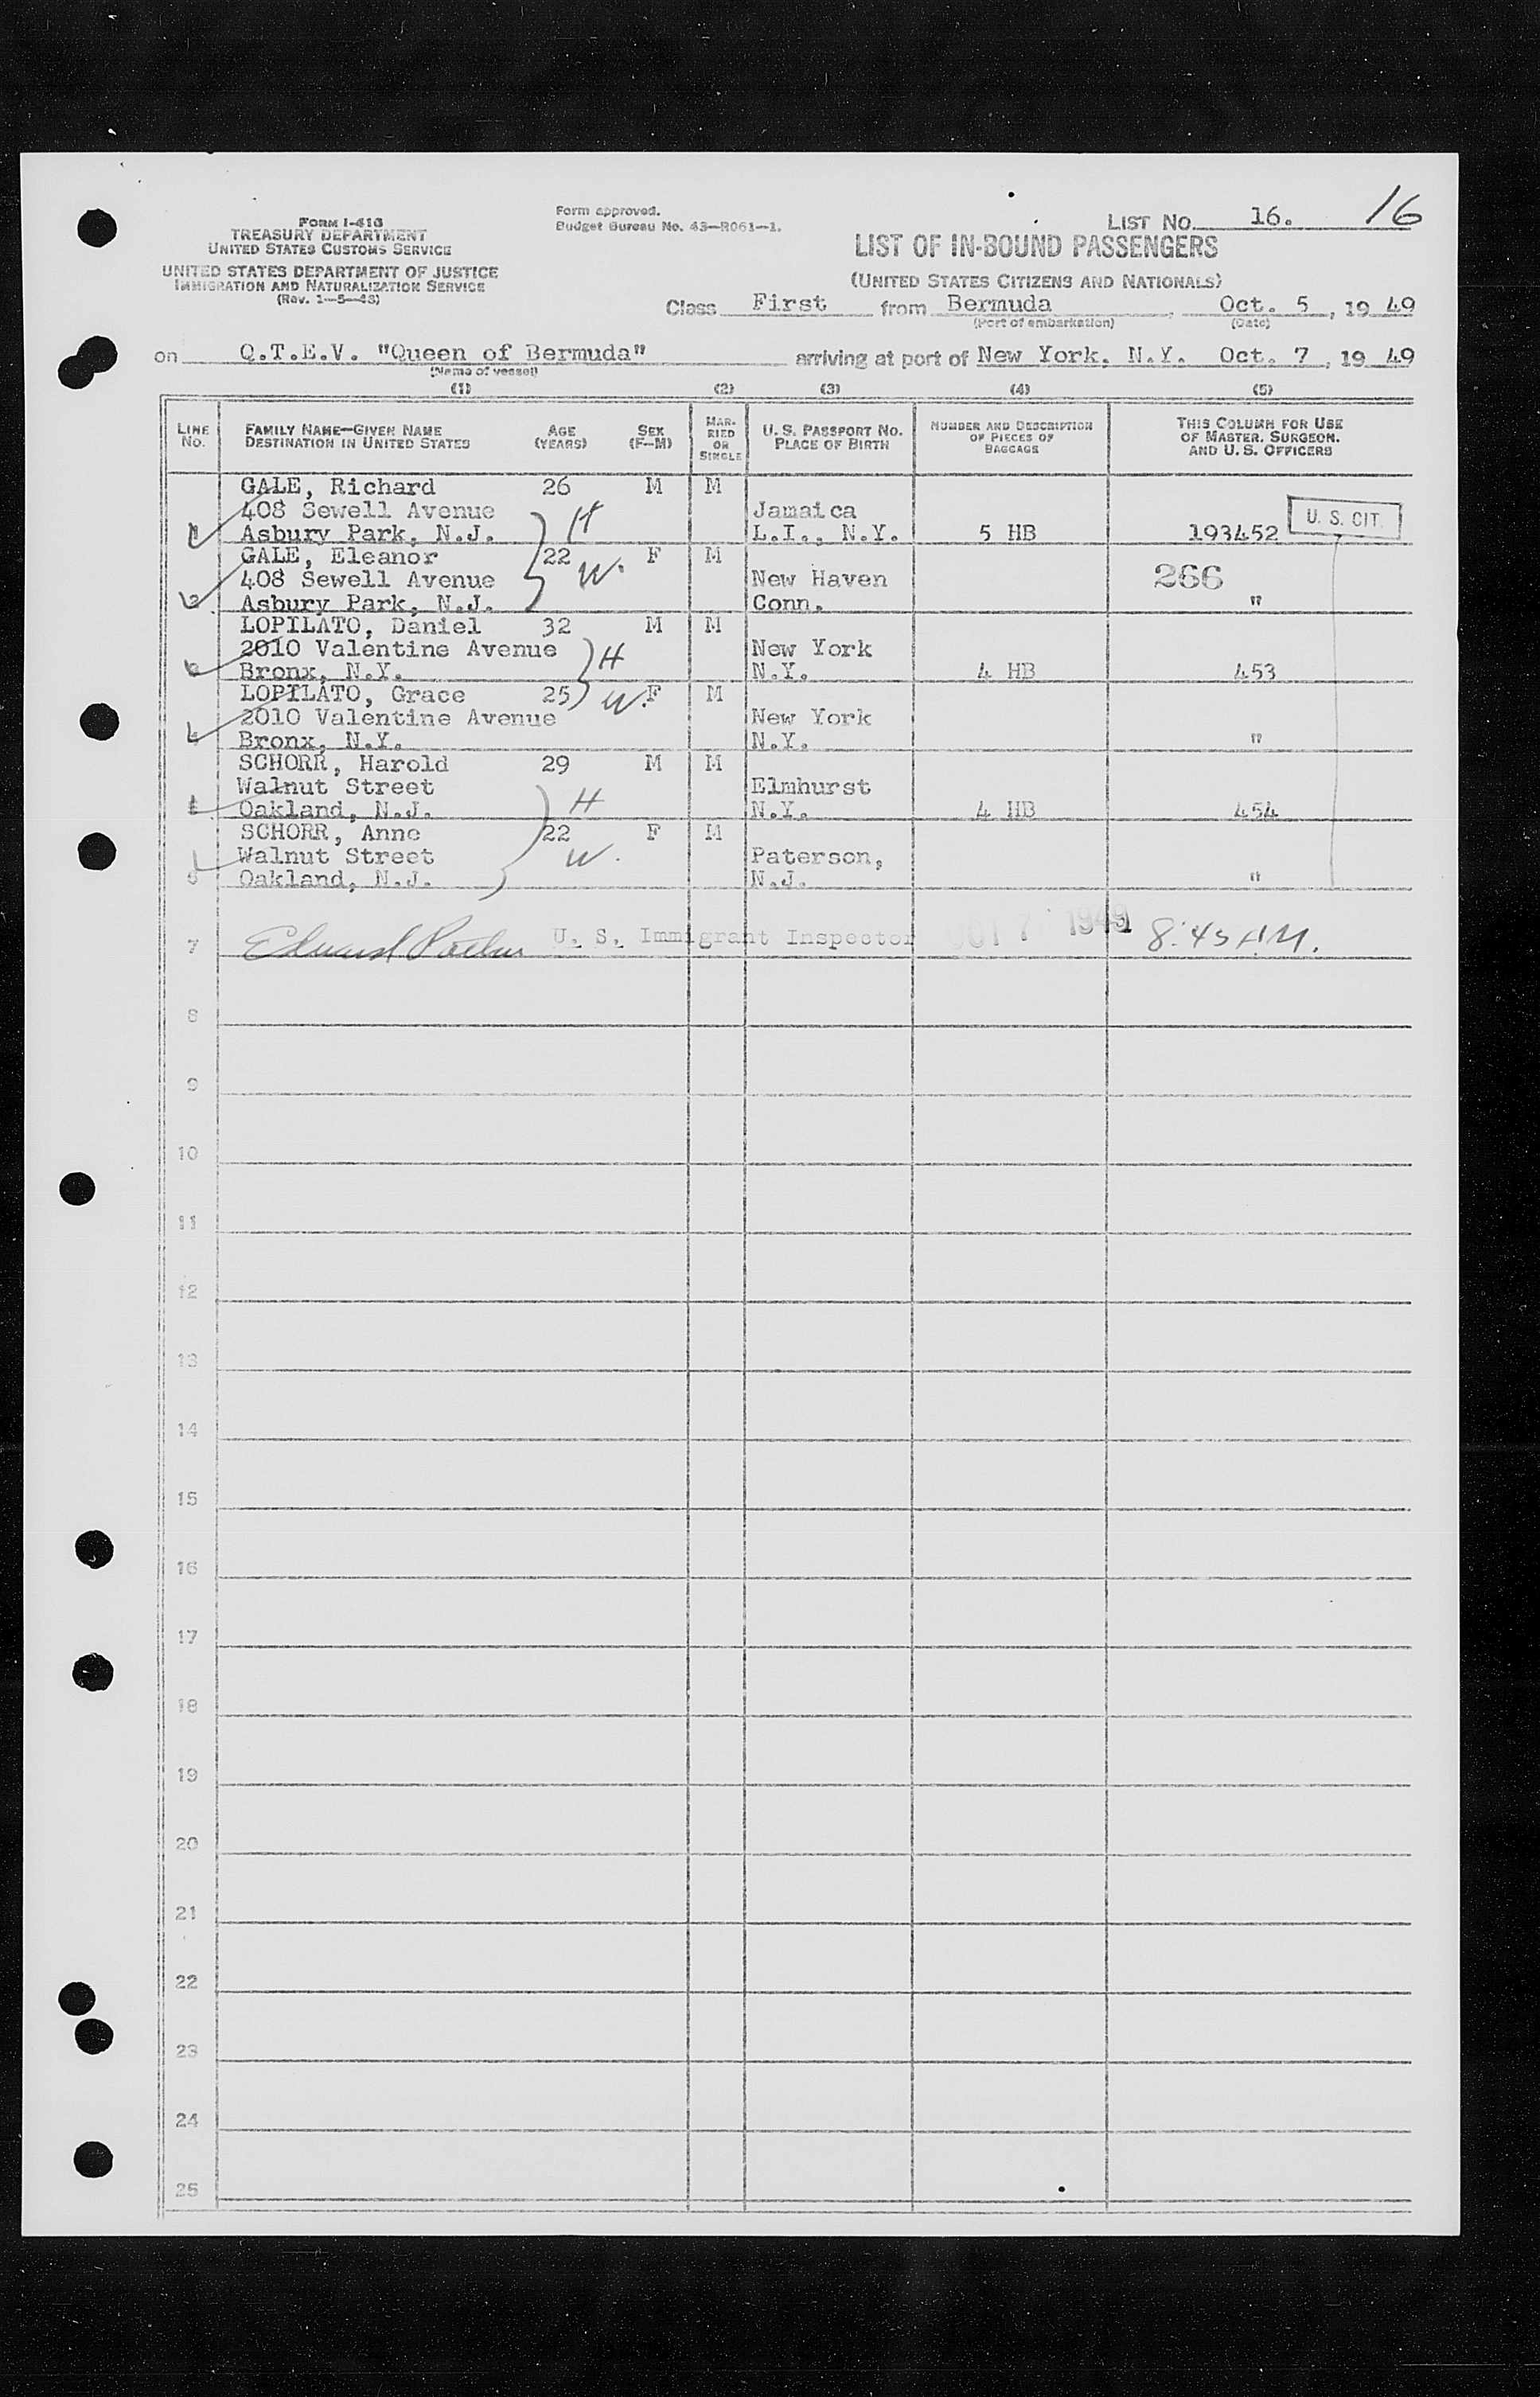 FORM I-416
TREASURY DEPARTMENT
UNITED STATES CUSTOMS SERVICE
UNITED STATES DEPARTMENT OF JUSTICE
IMMIGRATION AND NATURALIZATION SERVICE
(Rev. 1-5-48)
Form approved.
Budget Bureau No. 43-R061-1.
LIST NO. 16. 16
LIST OF IN-BOUND PASSENGERS
(UNITED STATES CITIZENS AND NATIONALS)
Class First from Bermuda, Oct. 5, 19 49
(Port of embarkation) (Date)
on Q.T.E.V. "Queen of Bermuda" arriving at port of New York, N.Y. Oct. 7, 19 49
(Name of vessel)
(1) (2) (3) (4) (5)
LINE NO. FAMILY NAME—GIVEN NAME DESTINATION IN UNITED STATES AGE (YEARS) SEX (F-M) MARRIED OR SINGLE U. S. PASSPORT NO. PLACE OF BIRTH NUMBER AND DESCRIPTION OF PIECES OF BAGGAGE THIS COLUMN FOR USE OF MASTER, SURGEON, AND U. S. OFFICERS
GALE, Richard 26 M M
408 Sewell Avenue H Jamaica U. S. CIT.
1 Asbury Park, N.J. L.I., N.Y. 5 HB 193452
GALE, Eleanor 22 F M
408 Sewell Avenue W. New Haven 266
2 Asbury Park, N.J. Conn. "
LOPILATO, Daniel 32 M M
2010 Valentine Avenue H New York
3 Bronx, N.Y. N.Y. 4 HB 453
LOPILATO, Grace 25 W. F M
2010 Valentine Avenue New York
4 Bronx, N.Y. N.Y. "
SCHORR, Harold 29 M M
Walnut Street H Elmhurst
5 Oakland, N.J. N.Y. 4 HB 454
SCHORR, Anne 22 F M
Walnut Street W. Paterson,
6 Oakland, N.J. N.J. "
7 Edward U. S. Immigrant Inspector OCT 7 1949 8:45 AM.
8
9
10
11
12
13
14
15
16
17
18
19
20
21
22
23
24
25